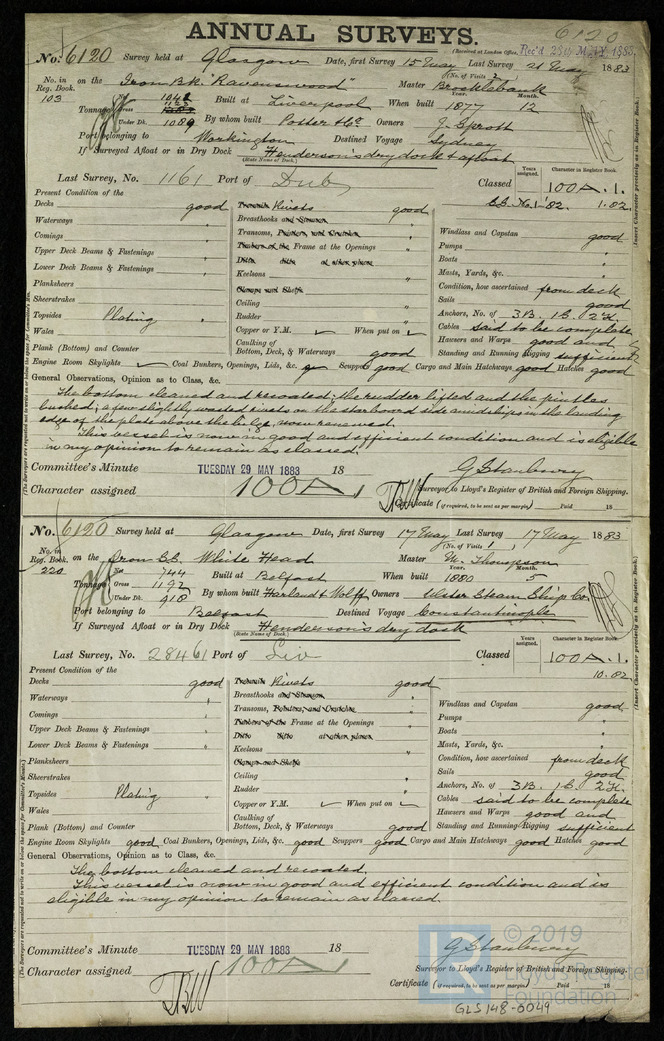 6120
ANNUAL SURVEYS.
(Received at London Office, Rec'd 28th MAY 1883
No. 6120 Survey held at Glasgow Date, first Survey 15 May Last Survey 21 May 1883
(No. of Visits 2)
No. in Reg. Book. 103 on the Iron Bk. "Ravenswood" Master Brocklebank
Tonnage Net Gross Under Dk. 1089 Built at Liverpool When built 1877 Year. Month. 12
By whom built Potter & Co. Owners J. Sprott
Port belonging to Workington Destined Voyage Sydney
If Surveyed Afloat or in Dry Dock Henderson's dry dock & afloat
(State Name of Dock.)
Last Survey, No. 1161 Port of Dub Classed Years assigned. Character in Register Book. 100A.1.
S.S. No.1-82. 1.82
Present Condition of the
Decks good
Waterways "
Comings "
Upper Deck Beams & Fastenings "
Lower Deck Beams & Fastenings "
Planksheers
Sheerstrakes
Topsides Plating "
Wales
Plank (Bottom) and Counter
Treenails Rivets good
Breasthooks and Stemson "
Transoms, Pointers and Crutches "
Timbers of the Frame at the Openings "
Ditto ditto at other places
Keelsons "
Clamps and Shelfs
Ceiling "
Rudder "
Copper or Y.M. When put on
Caulking of Bottom, Deck, & Waterways good
Windlass and Capstan good
Pumps "
Boats "
Masts, Yards, &c. "
Condition, how ascertained from deck
Sails good
Anchors, No. of 3B. 1S. 2K.
Cables said to be complete
Hawsers and Warps good and
Standing and Running Rigging sufficient
Engine Room Skylights Coal Bunkers, Openings, Lids, &c. Scuppers good Cargo and Main Hatchways good Hatches good
General Observations, Opinion as to Class, &c.
The bottom cleaned and recoated; the rudder lifted and the pintles
bushed; a few slightly wasted rivets on the starboard side amidships in the landing
edge of the plate above the bilge, now renewed.
This vessel is now in good and efficient condition and is eligible
in my opinion to remain as classed.
Committee's Minute TUESDAY 29 MAY 1883 18
Character assigned 100A1
G Stanbury
Surveyor to Lloyd's Register of British and Foreign Shipping.
Certificate (if required, to be sent as per margin) Paid 18
No. 6120 Survey held at Glasgow Date, first Survey 17 May Last Survey 17 May 1883
(No. of Visits 1)
No. in Reg. Book. 220 on the Iron S.S. White Head Master M. Thompson
Tonnage Net 744 Gross 1192 Under Dk. 910 Built at Belfast When built 1880 Year. Month. 5
By whom built Harland & Wolff Owners Ulster Steam Ship Co.
Port belonging to Belfast Destined Voyage Constantinople
If Surveyed Afloat or in Dry Dock Henderson's dry dock
(State Name of Dock.)
Last Survey, No. 28461 Port of Liv Classed Years assigned. Character in Register Book. 100A.1.
10.82
Present Condition of the
Decks good
Waterways "
Comings "
Upper Deck Beams & Fastenings "
Lower Deck Beams & Fastenings "
Planksheers
Sheerstrakes
Topsides Plating "
Wales
Plank (Bottom) and Counter
Treenails Rivets good
Breasthooks and Stemson "
Transoms, Pointers, and Crutches "
Timbers of the Frame at the Openings "
Ditto ditto at other places
Keelsons "
Clamps and Shelfs
Ceiling "
Rudder "
Copper or Y.M. When put on
Caulking of Bottom, Deck, & Waterways good
Windlass and Capstan good
Pumps "
Boats "
Masts, Yards, &c. "
Condition, how ascertained from deck
Sails good
Anchors, No. of 3B. 1S. 2K.
Cables said to be complete
Hawsers and Warps good and
Standing and Running Rigging sufficient
Engine Room Skylights good Coal Bunkers, Openings, Lids, &c. good Scuppers good Cargo and Main Hatchways good Hatches good
General Observations, Opinion as to Class, &c.
The bottom cleaned and recoated.
This vessel is now in good and efficient condition and is
eligible in my opinion to remain as classed.
Committee's Minute TUESDAY 29 MAY 1883 18
Character assigned 100A1
G Stanbury
Surveyor to Lloyd's Register of British and Foreign Shipping.
Certificate (if required, to be sent as per margin) Paid 18
© 2019
Lloyd's Register
Foundation
GLS148-0049
(Insert Character precisely as in Register Book.)
(The Surveyors are requested not to write on or below the space for Committee's Minute.)